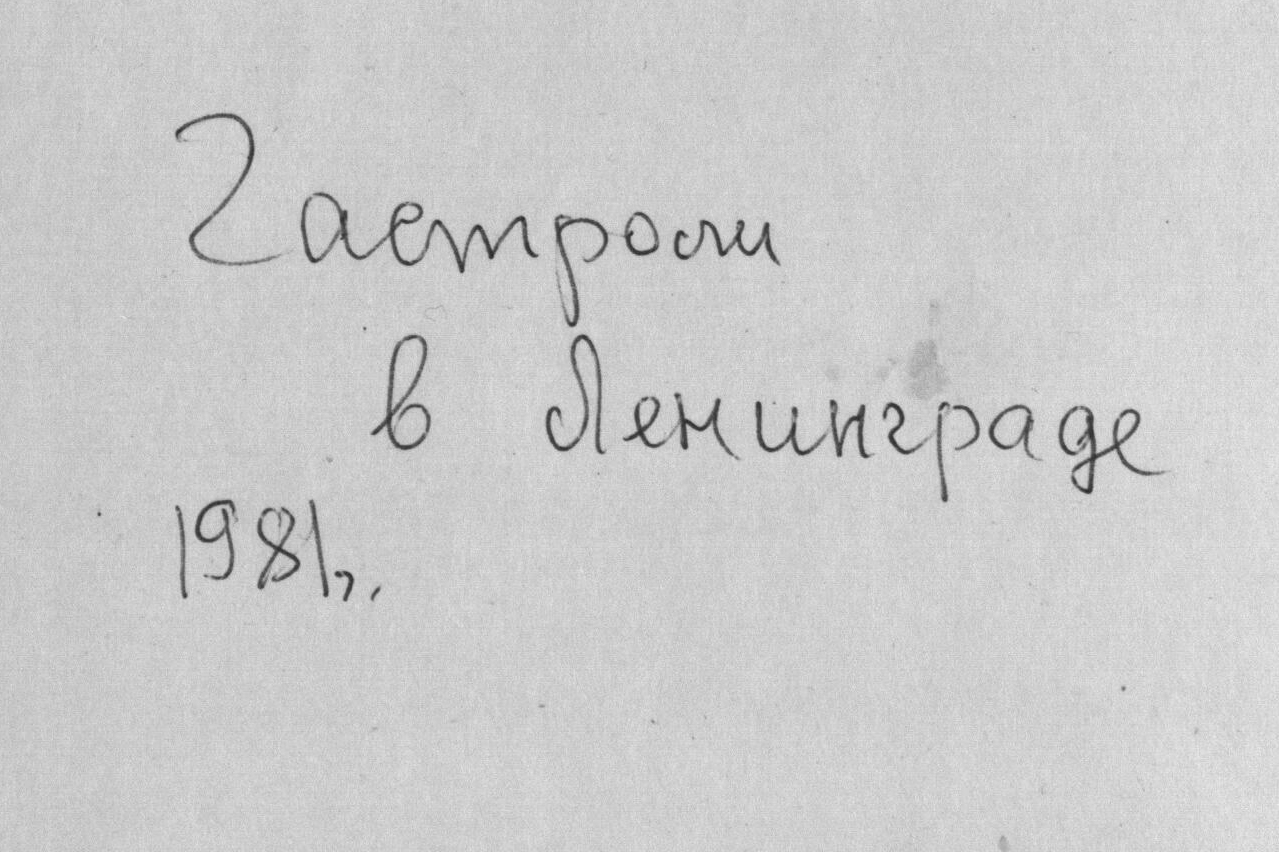 Гастроли
в Ленинграде
1981г.